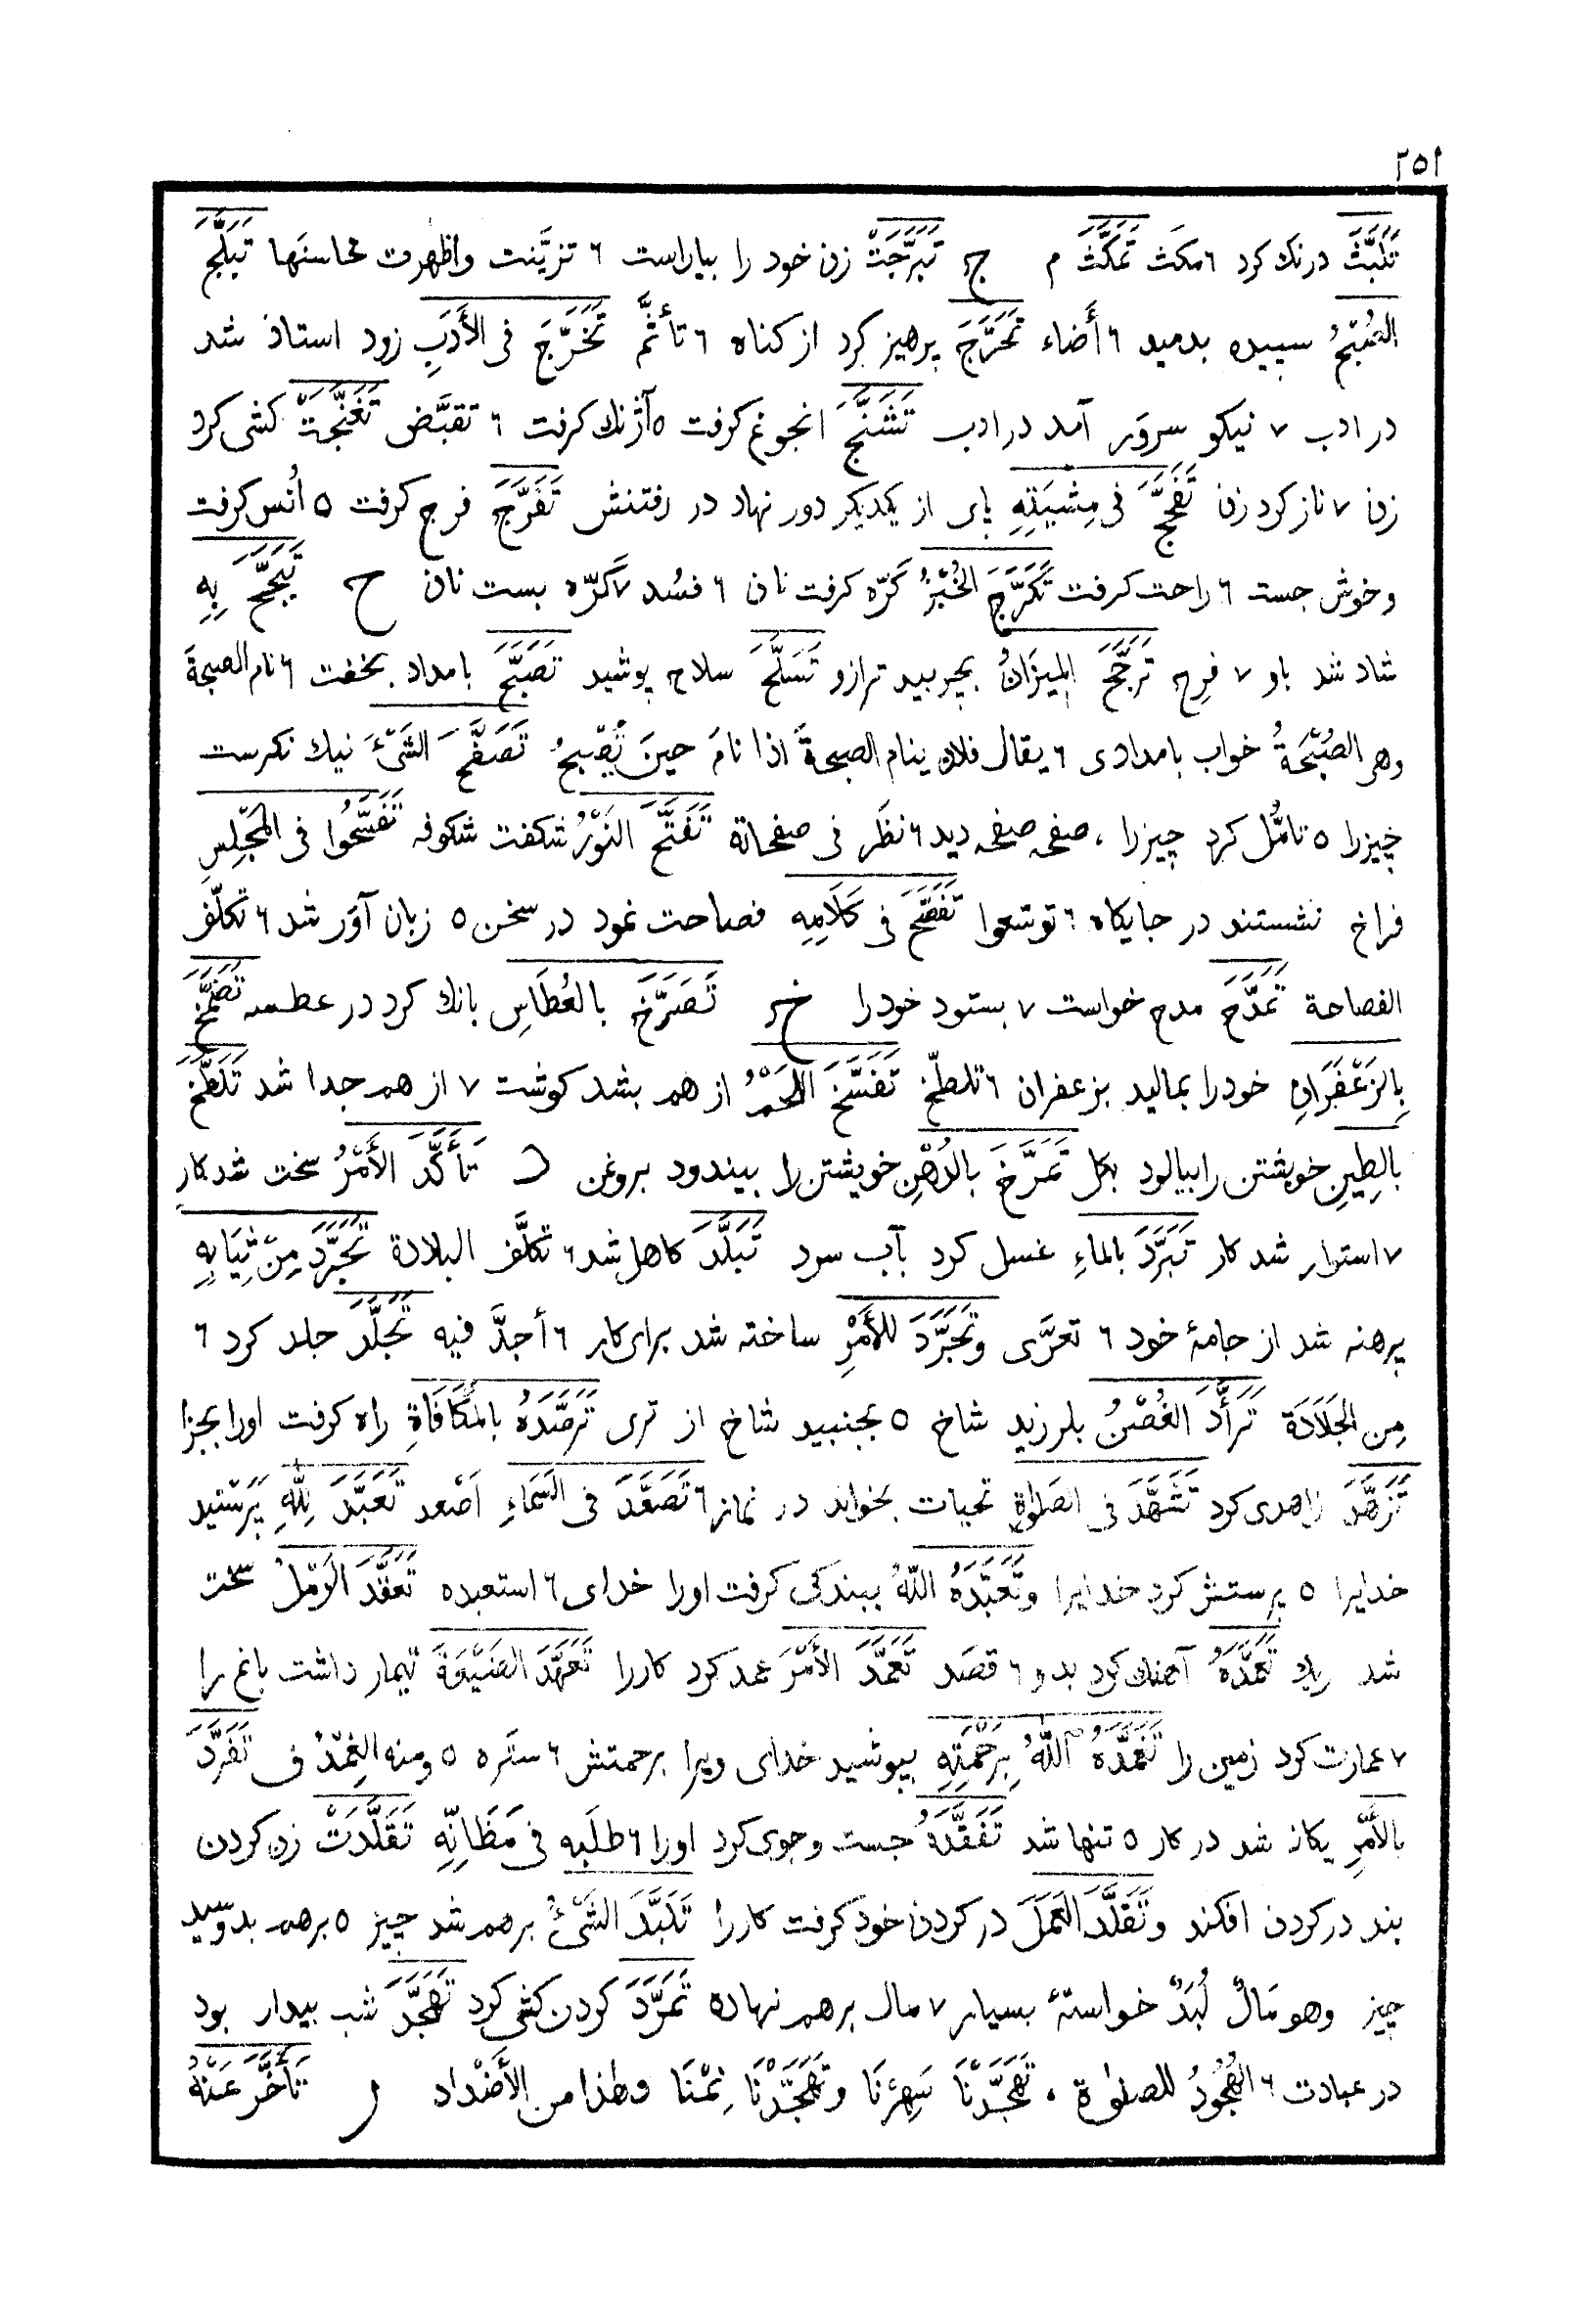 ٢٥١
تَلَبَّثَ درنك كرد ٦ مكَث تَمَكَّثَ م ج تَبَرَّجَتْ زن خود را بياراست ٦ تزيَّنت واظهرت محاسنَها تَبَلَّجَ
الصُبْحُ سپيده بدميد ٦ أَضاء تَحَرَّجَ پرهيز كرد از كناه ٦ تأثَّم تَخَرَّجَ فى الأَدَبِ زود استاذ شد
در ادب ٧ نيكو سروَر آمد در ادب تَشَنَّجَ انجوغ كرفت ٥ آژنك كرفت ٦ تقبَّض تَغَنَّجَتْ كشى كرد
زن ٧ ناز كرد زن تَفَحَّجَ فى مِشْيَتِهِ پاى از يكديكر دور نهاد در رفتنش تَفَرَّجَ فرج كرفت ٥ اُنس كرفت
وخوش جست ٦ راحت كرفت تَكَرَّجَ الخُبْزُ كَرّه كرفت نان ٦ فسُد ٧ كَرّه بست نان ح تَبَجَّحَ بِهِ
شاد شد باو ٧ فرِح تَرَجَّحَ المِيزَانُ بچربيد ترازو تَسَلَّحَ سلاح پوشيد تَصَبَّحَ بامداد بخفت ٦ نام الصبحةَ
وهى الصُبْحَةُ خواب بامدادى ٦ يقال فلان ينام الصبحةَ اذا نامَ حينَ يُصْبِحُ تَصَفَّحَ الشَىْءَ نيك نكرست
چيزرا ٥ تامُّل كرد چيزرا ، صفحه صفحه ديد ٦ نظَر فى صفحاته تَفَتَّحَ النَوْرُ شكفت شكوفه تَفَسَّحُوا فى المَجْلِسِ
فراخ نشستند در جايكاه ٦ توسّعوا تَفَصَّحَ فى كَلَامِهِ فصاحت نمود در سخن ٥ زبان آوَر شد ٦ تكلّف
الفصاحة تَمَدَّحَ مدح خواست ٧ بستود خود را خ تَصَرَّخَ بالعُطَاسِ بانك كرد در عطسه تَضَمَّخَ
بِالزَعْفَرَانِ خود را بماليد بزعفران ٦ تلطّخ تَفَسَّخَ اللَحْمُ از هم بشد كوشت ٧ از هم جدا شد تَلَطَّخَ
بالطِينِ خويشتن را بيالود بكل تَمَرَّخَ بالدُهْنِ خويشتن را بيندود بروغن د تَأَكَّدَ الأَمْرُ سخت شد كار
٧ استوار شد كار تَبَرَّدَ بالماءِ غسل كرد بآب سرد تَبَلَّدَ كاهل شد ٦ تكلَّف البلادة تَجَرَّدَ مِنْ ثِيَابِهِ
برهنه شد از جامهٔ خود ٦ تعرَّى وتَجَرَّدَ للأَمْرِ ساخته شد براى كار ٦ أجدَّ فيه تَجَلَّدَ جلد كرد ٦
مِن الجَلَادَة تَرَأَّدَ الغُصْنُ بلرزيد شاخ ٥ بجنبيد شاخ از ترى تَرَصَّدَهُ بالمُكَافَاةِ راه كرفت اورا بجزا
تَزَهَّدَ زاهدى كرد تَشَهَّدَ فى الصَلوٰةِ تحيات بخواند در نماز ٦ تَصَعَّدَ فى السَمَاءِ اَصْعد تَعَبَّدَ لِلّٰهِ پَرستيد
خدايرا ٥ پرستش كرد خدايرا وتَعَبَّدَهُ اللّٰهُ ببندكى كرفت اورا خداى ٦ استعبده تَعَقَّدَ الرَمْلُ سخت
شد ريك تَعَمَّدَهُ آهنك كرد بدو ٦ قصَد تَعَمَّدَ الأَمْرَ عمد كرد كاررا تَعَهَّدَ الضَيْعَةَ تيمار داشت باغ را
٧ عمارت كرد زمين را تَغَمَّدَهُ اللّٰهُ بِرَحْمَتِهِ بپوشيد خداى ويرا برحمتش ٦ ستَره ٥ ومنه الغِمْدُ ف تَفَرَّدَ
بالأَمْرِ يكانه شد در كار ٥ تنها شد تَفَقَّدَهُ جست وجوى كرد اورا ٦ طلَبه فى مَظَانِّهِ تَقَلَّدَتْ زن كردن
بند در كردن افكند وتَقَلَّدَ العَمَلَ در كردن خود كرفت كاررا تَلَبَّدَ الشَىْءُ برهم شد چيز ٥ برهم بدوسيد
چيز وهو مَالٌ لُبَدٌ خواستهٔ بسيار ٧ مال برهم نهاده تَمَرَّدَ كردن كشى كرد تَهَجَّدَ شب بيدار بود
در عبادت ٦ الهُجُودُ للصلوٰة ، تَهَجَّدْنَا سَهِرْنَا وتَهَجَّدْنَا نِمْنَا وهٰذا من الأَضْداد ر تَأَخَّرَ عَنْهُ